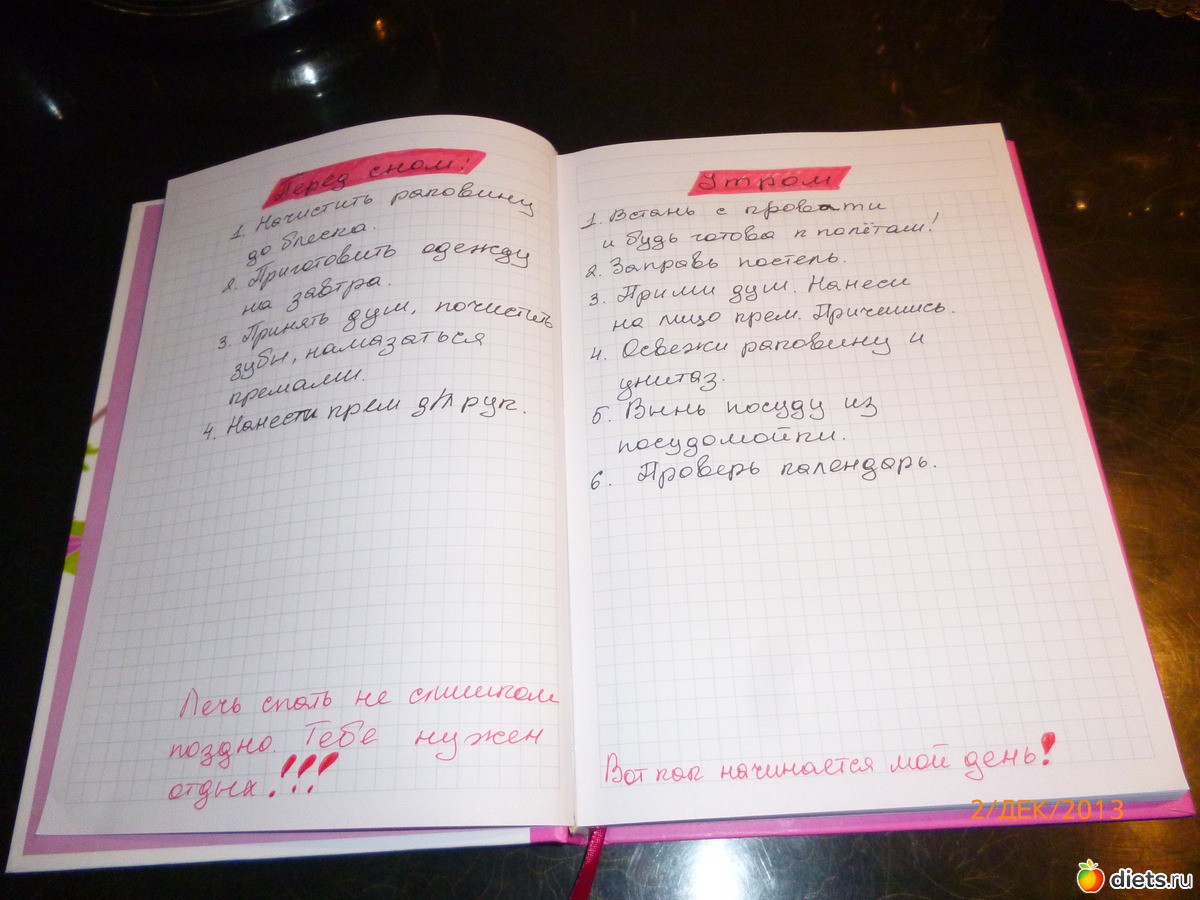 Перед сном!
1. Начистить раковину
до блеска.
2. Приготовить одежду
на завтра.
3. Принять душ, почистить
зубы, намазаться
кремами.
4. Нанести крем д/л рук.
Лечь спать не слишком
поздно. Тебе нужен
отдых!!!
Утром
1. Встань с кровати
и будь готова к полётам!
2. Заправь постель.
3. Прими душ. Нанеси
на лицо крем. Причешись.
4. Освежи раковину и
унитаз.
5. Вынь посуду из
посудомойки.
6. Проверь календарь.
Вот как начинается мой день!
2/ДЕК/2013
diets.ru